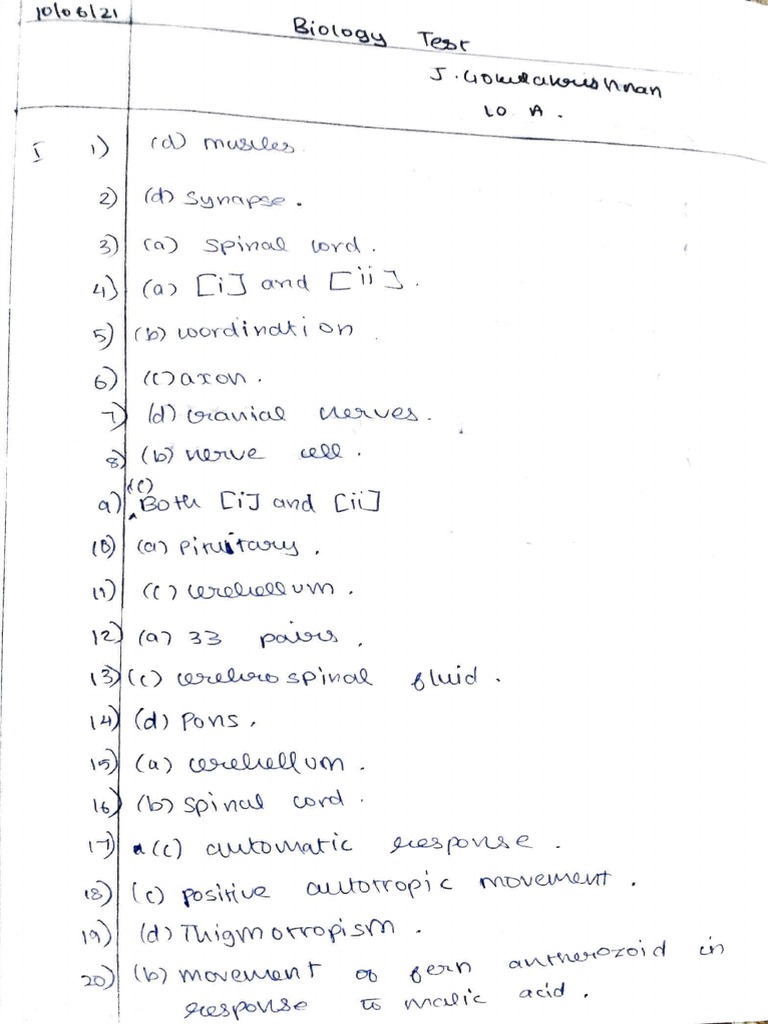 10/06/21
Biology Test
J. Gowdakrishnan
10 A.
I 1) (d) muscles
2) (d) synapse.
3) (a) spinal cord.
4) (a) [i] and [ii].
5) (b) coordination
6) (c) axon.
7) (d) cranial nerves.
8) (b) nerve cell.
9) (c) Both [i] and [ii]
10) (a) Pituitary.
11) (c) cerebellum.
12) (a) 33 pairs.
13) (c) cerebro spinal fluid.
14) (d) Pons.
15) (a) cerebellum.
16) (b) spinal cord.
17) (c) automatic response.
18) (c) positive autotropic movement.
19) (d) Thigmotropism.
20) (b) movement of fern antherozoid in
response to malic acid.